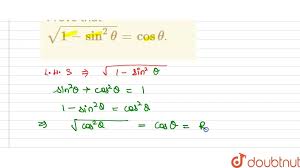 √(1 − sin² θ) = cos θ.
L.H.S ⇒ √(1 − sin² θ)
sin²θ + cos²θ = 1
1 − sin²θ = cos²θ
⇒ √(cos²θ) = cosθ = R
doubtnut